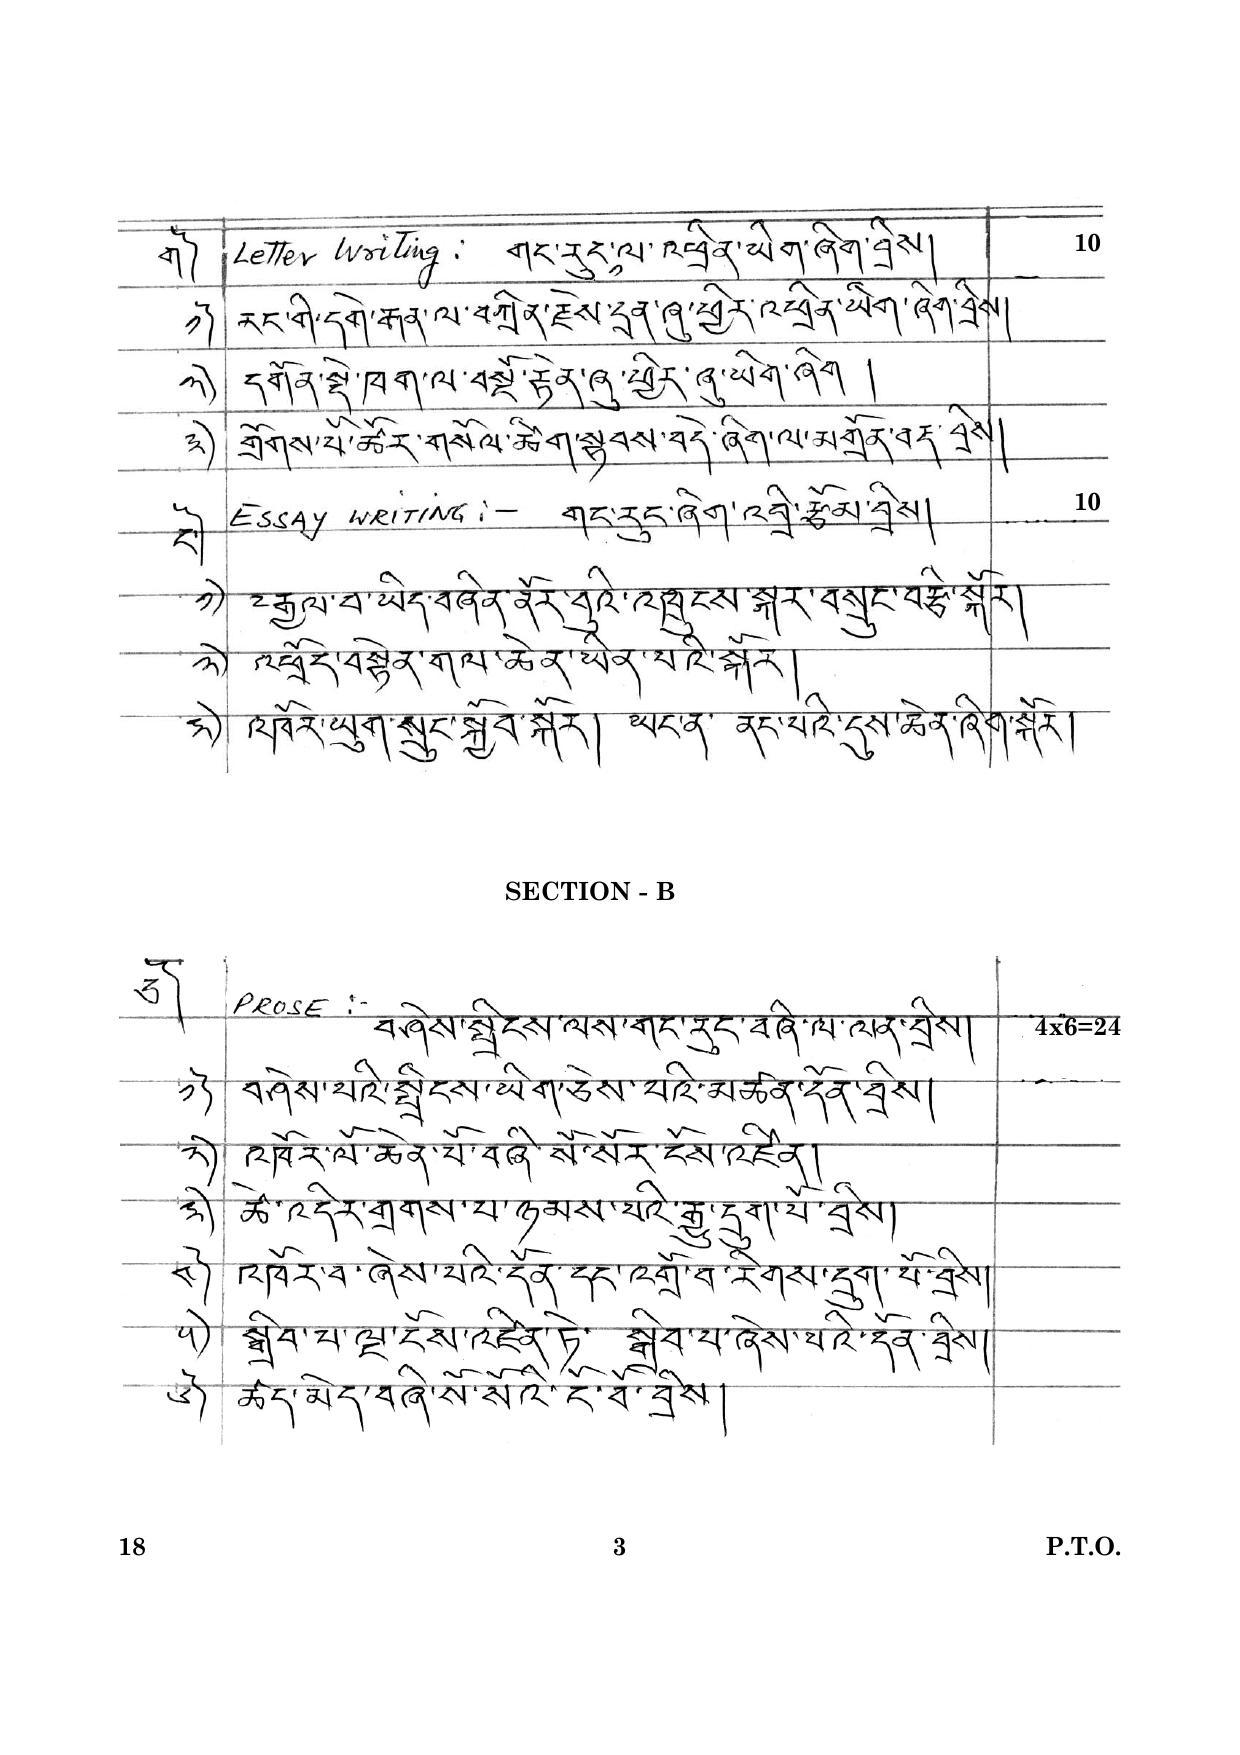 ག༽ Letter Writing: གང་རུང་ལ་འཕྲིན་ཡིག་ཞིག་བྲིས། 10
༡༽ རང་གི་དགེ་རྒན་ལ་བཀྲིན་རྗེས་དྲན་ཞུ་ཕྱིར་འཕྲིན་ཡིག་ཞིག་བྲིས།
༢༽ དགོན་སྡེ་ཁག་ལ་བསྔོ་རྟེན་ཞུ་ཕྱིར་ཞུ་ཡིག་ཞིག །
༣༽ གྲོགས་པོ་ཚོར་གསོལ་ཚིག་སྟབས་བདེ་ཞིག་ལ་མགྲོན་བརྡ་བྲིས།
ང༽ ESSAY WRITING:- གང་རུང་ཞིག་འབྲི་རྩོམ་བྲིས། 10
༡༽ རྒྱལ་བ་ཡིད་བཞིན་ནོར་བུའི་འཁྲུངས་སྐར་བསྲུང་བརྩི་སྐོར།
༢༽ འཕྲོད་བསྟེན་གལ་ཆེན་ཡིན་པའི་སྐོར།
༣༽ ཁོར་ཡུག་སྲུང་སྐྱོབ་སྐོར། ཡང་ན་ ནང་པའི་དུས་ཆེན་ཞིག་སྐོར།
SECTION - B
PROSE :-
བཤེས་སྤྲིངས་ལས་གང་རུང་བཞི་ལ་ལན་བྲིས། 4x6=24
༡༽ བཤེས་པའི་སྤྲིངས་ཡིག་ཅེས་པའི་མཚན་དོན་བྲིས།
༢༽ འཁོར་ལོ་ཆེན་པོ་བཞི་སོ་སོར་ངོས་འཛིན།
༣༽ ཚེ་འདིར་གྲགས་པ་ཉམས་པའི་རྒྱུ་དྲུག་པོ་བྲིས།
༤༽ འཁོར་བ་ཞེས་པའི་དོན་དང་འགྲོ་བ་རིགས་དྲུག་པོ་བྲིས།
༥༽ སྒྲིབ་པ་ལྔ་ངོས་འཛིན་ཏེ་ སྒྲིབ་པ་ཞེས་པའི་དོན་བྲིས།
༦༽ ཚད་མེད་བཞི་སོ་སོའི་ངོ་བོ་བྲིས།
18 3 P.T.O.